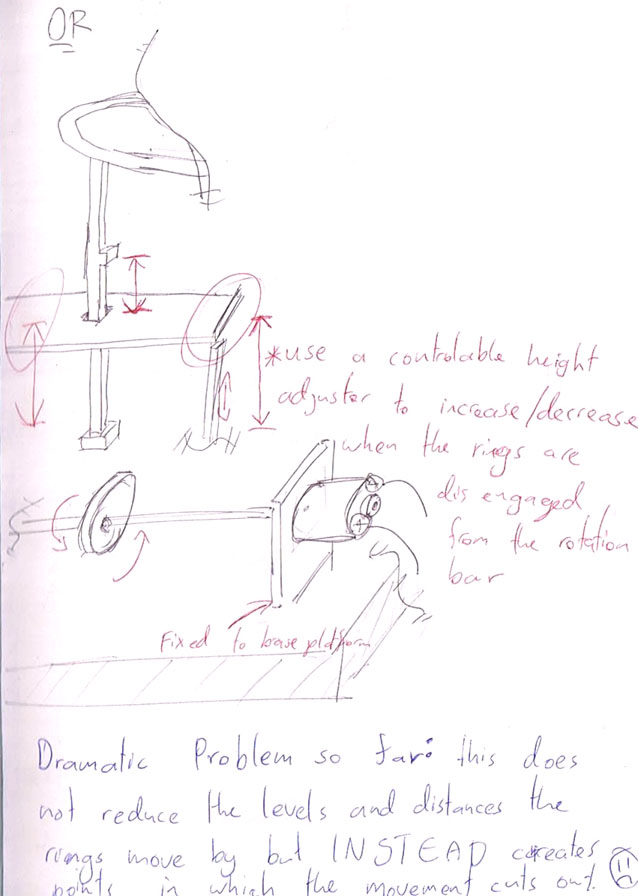 OR
*use a controlable height
adjuster to increase/decrease
when the rings are
disengaged
from the rotation
bar
Fixed to base platform
Dramatic Problem so far: this does
not reduce the levels and distances the
rings move by but INSTEAD creates
points in which the movement cuts out